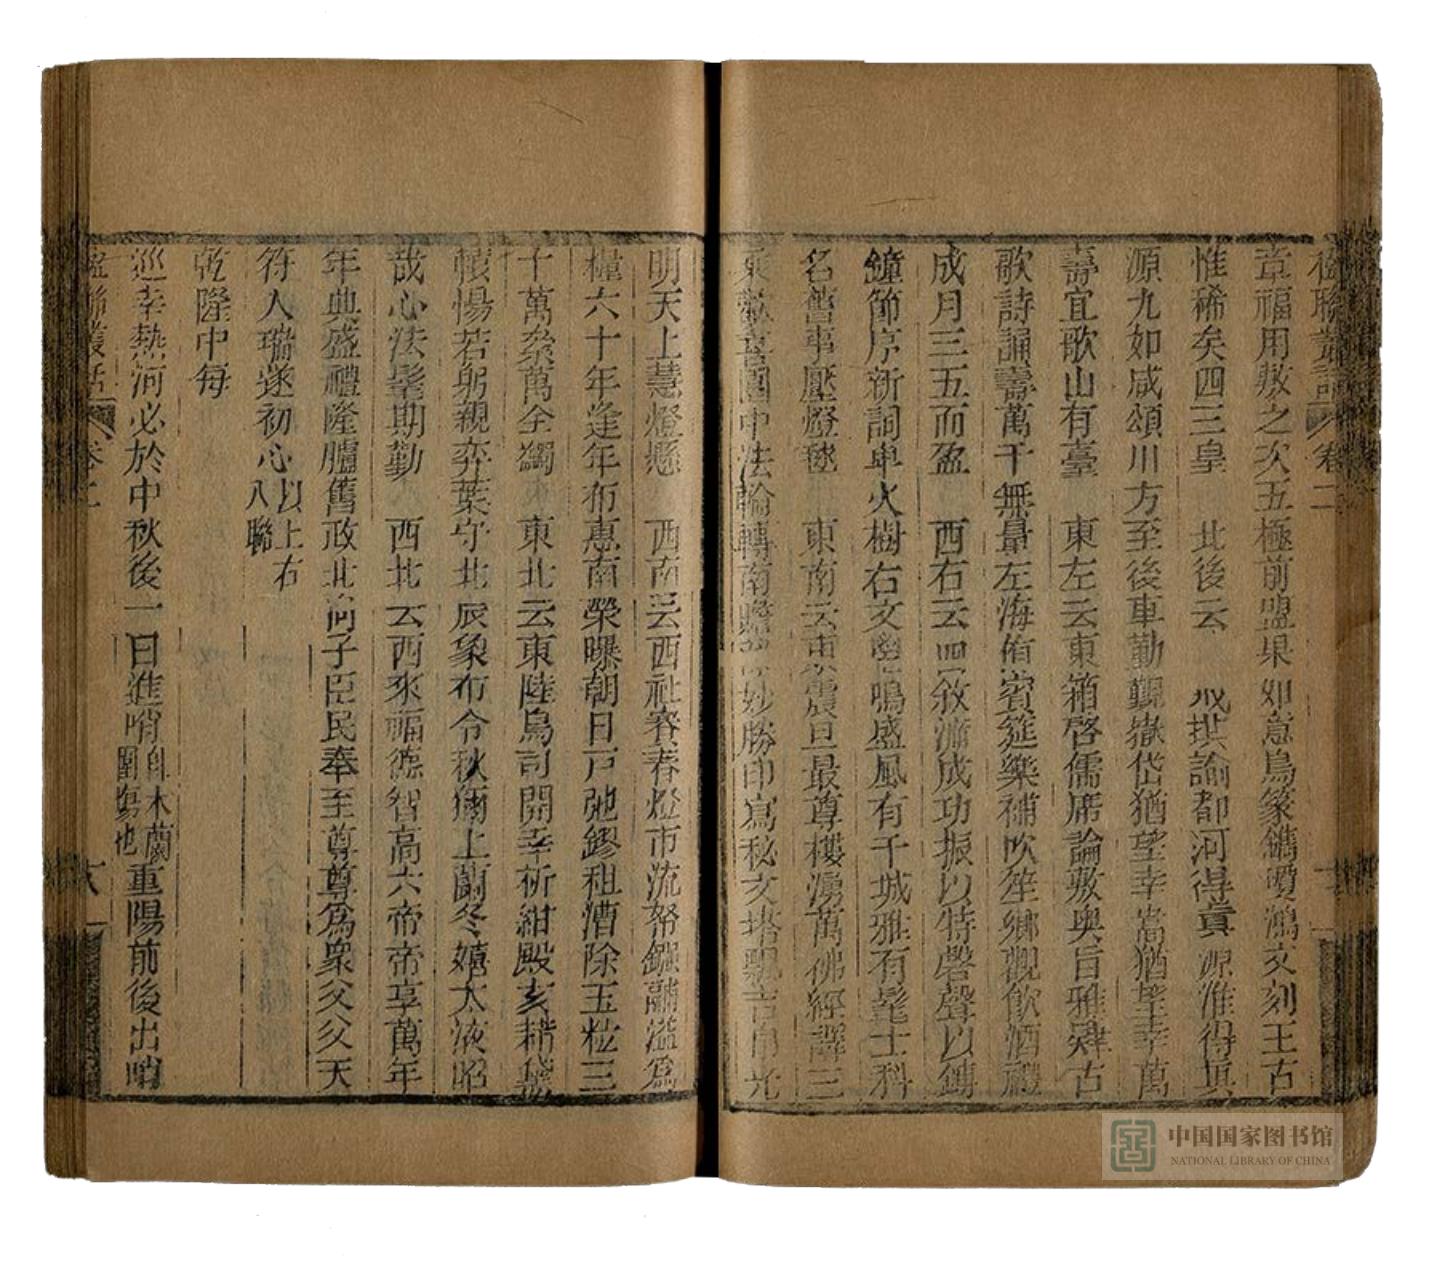 楹聯叢話 卷二
章福用敷之次五極前盟果如意鳥篆鐫曖鴻文刻玉古
惟稀矣四三皇 北後云 戒撰諭都河得貴源淮得其
源九如咸頌川方至後車勤覲嶽岱猶望幸嵩猶望幸萬
壽宜歌山有臺 東左云東箱啓儒席論敷奥旨雅肄古
歌詩誦壽萬千無量左海侑賓筵樂補吹笙鄉觀飲酒禮
成月三五而盈 西右云四敘滌成功振以特磬聲以鎛
鐘節序新詞卑火樹右文 鳴盛風有千城雅有髦士科
名舊事壓燈毬 東南云東震旦最尊樓湧萬佛經譯三
園中法輪轉南贍 妙勝印寫秘文塔 吉 光
明天上慧燈懸 西南云西社賽春燈市流帑鏹 溢爲
糧六十年逢年布惠南榮曝朝日戶弛鏐租漕除玉粒三
十萬叅萬全蠲 東北云東陸鳥司開幸祈紺殿亥耤黛
犢惕若躬親弄葉守北辰象布令秋獮上蘭冬嬉太液昭
哉心法髦期勤 西北云西來福德智高六帝帝享萬年
年典盛禮隆臚舊政北向子臣民奉至尊尊爲衆父父天
符人瑞遂初心以上右八聯
乾隆中每
巡幸熱河必於中秋後一日進哨卽木蘭圍塲也重陽前後出哨
楹聯叢話 卷二 十八